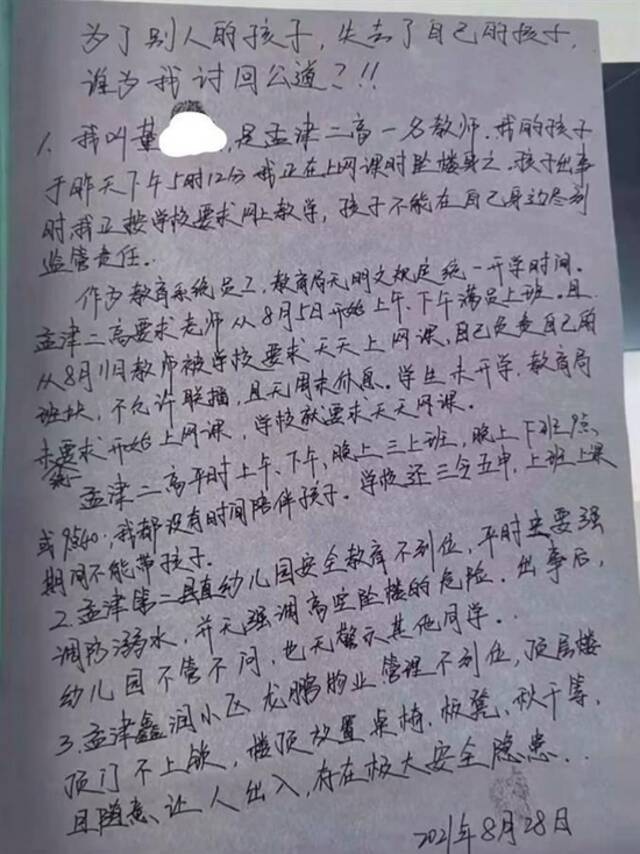 为了别人的孩子，失去了自己的孩子，
谁为我讨回公道？!!
1. 我叫董 ，是孟津二高一名教师。我的孩子
于昨天下午5时12分我正在上网课时坠楼身亡。孩子出事
时，我正按学校要求网上教学，孩子不能在自己身边尽到
监管责任。
作为教育系统员工，教育局无明文规定统一开学时间。
孟津二高要求老师从8月5日开始上午、下午满员上班。且
从8月11日教师被学校要求天天上网课，自己负责自己的
班块，不允许联播，且无周末休息。学生未开学，教育局
未要求开始上网课，学校就要求天天网课。
孟津二高平时上午、下午、晚上三上班，晚上下班9点
或9点40，我都没有时间陪伴孩子。学校还三令五申，上班上课
期间不能带孩子。
2. 孟津第二县直幼儿园安全教育不到位，平时主要强
调防溺水，并无强调高空坠楼的危险。出事后，
幼儿园不管不问，也无警示其他同学。
3. 孟津鑫润小区龙鹏物业管理不到位，顶层楼
顶门不上锁，楼顶放置桌椅、板凳、秋千等，
且随意让人出入，存在极大安全隐患..
2021年8月28日